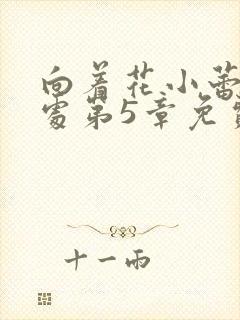 向着花小蕾
处第5章免费
十一雨